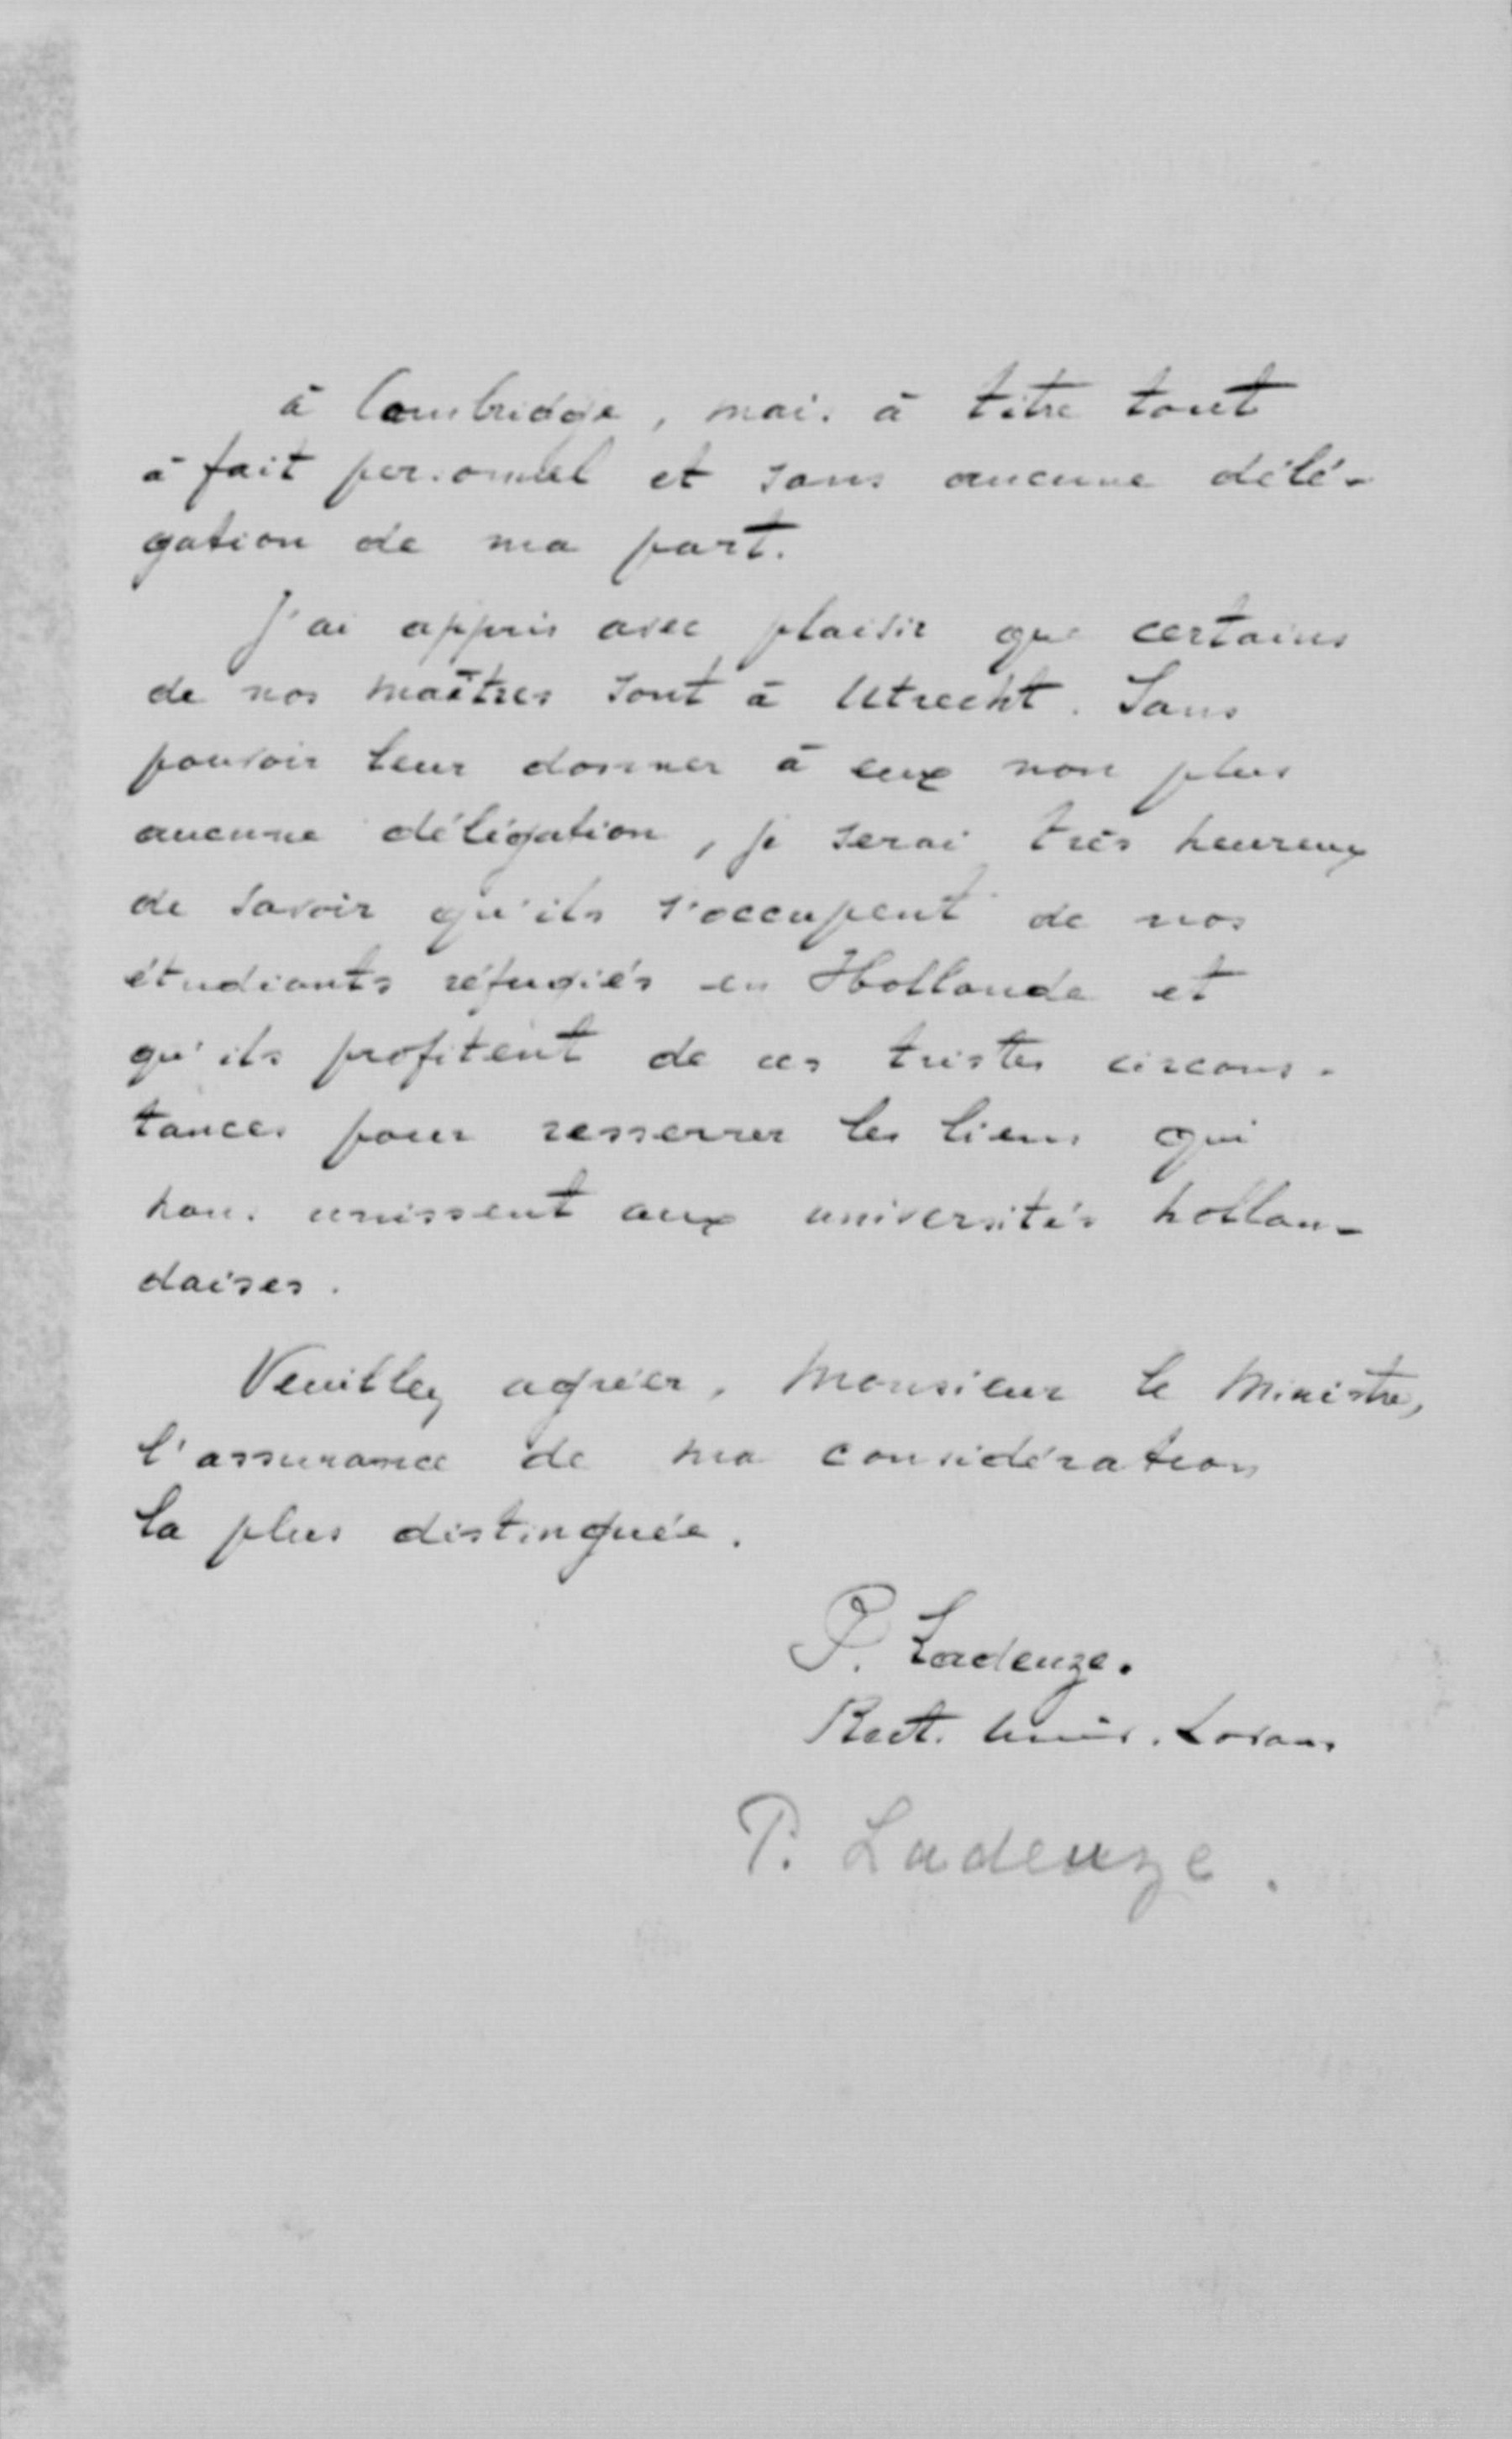 à Cambridge, mais à titre tout
à fait personnel et sans aucune délé-
gation de ma part.
J'ai appris avec plaisir que certains
de nos maîtres sont à Utrecht. Sans
pouvoir leur donner à eux non plus
aucune délégation, je serai très heureux
de savoir qu'ils s'occupent de nos
étudiants réfugiés en Hollande et
qu'ils profitent de ces tristes circons-
tances pour resserrer les liens qui
nous unissent aux universités hollan-
daises.
Veuillez agréer, Monsieur le Ministre,
l'assurance de ma considération
la plus distinguée.
P. Ladeuze.
Rect. Univ. Lovan.
P. Ladeuze.